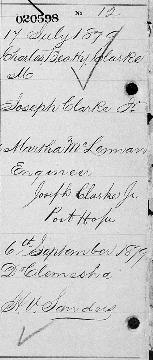 020598
No 12
17 July 1879
Charles Beaky Clarke
M
Joseph Clarke Fr
Martha McLennan
Engineer
Joseph Clarke Fr.
Port Hope
6th September 1879
Dr Clemesha
H. V. Sanders